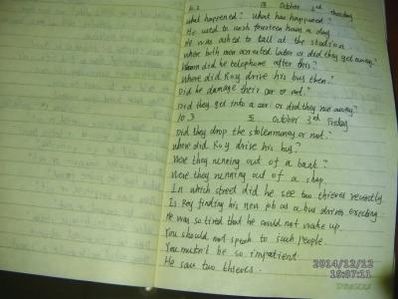 10.2 October 2nd Thursday
What happened? What has happened?
He used to work fourteen hours a day.
He was asked to call at the station.
Were both men arrested later or did they get away?
Whom did he telephone after this?
Where did Roy drive his bus then?
Did he damage their car or not?
Did they get into a car or did they run away?
10.3 5. October 3rd Friday
Did they drop the stolen money or not?
Where did Roy drive his bus?
Were they running out of a bank?
Were they running out of a shop.
In which street did he see two thieves recently
Is Roy finding his new job as a bus driver exciting
He was so tired that he could not wake up
You should not speak to such people.
You mustn't be so impatient
He saw two thieves.
2014/12/12